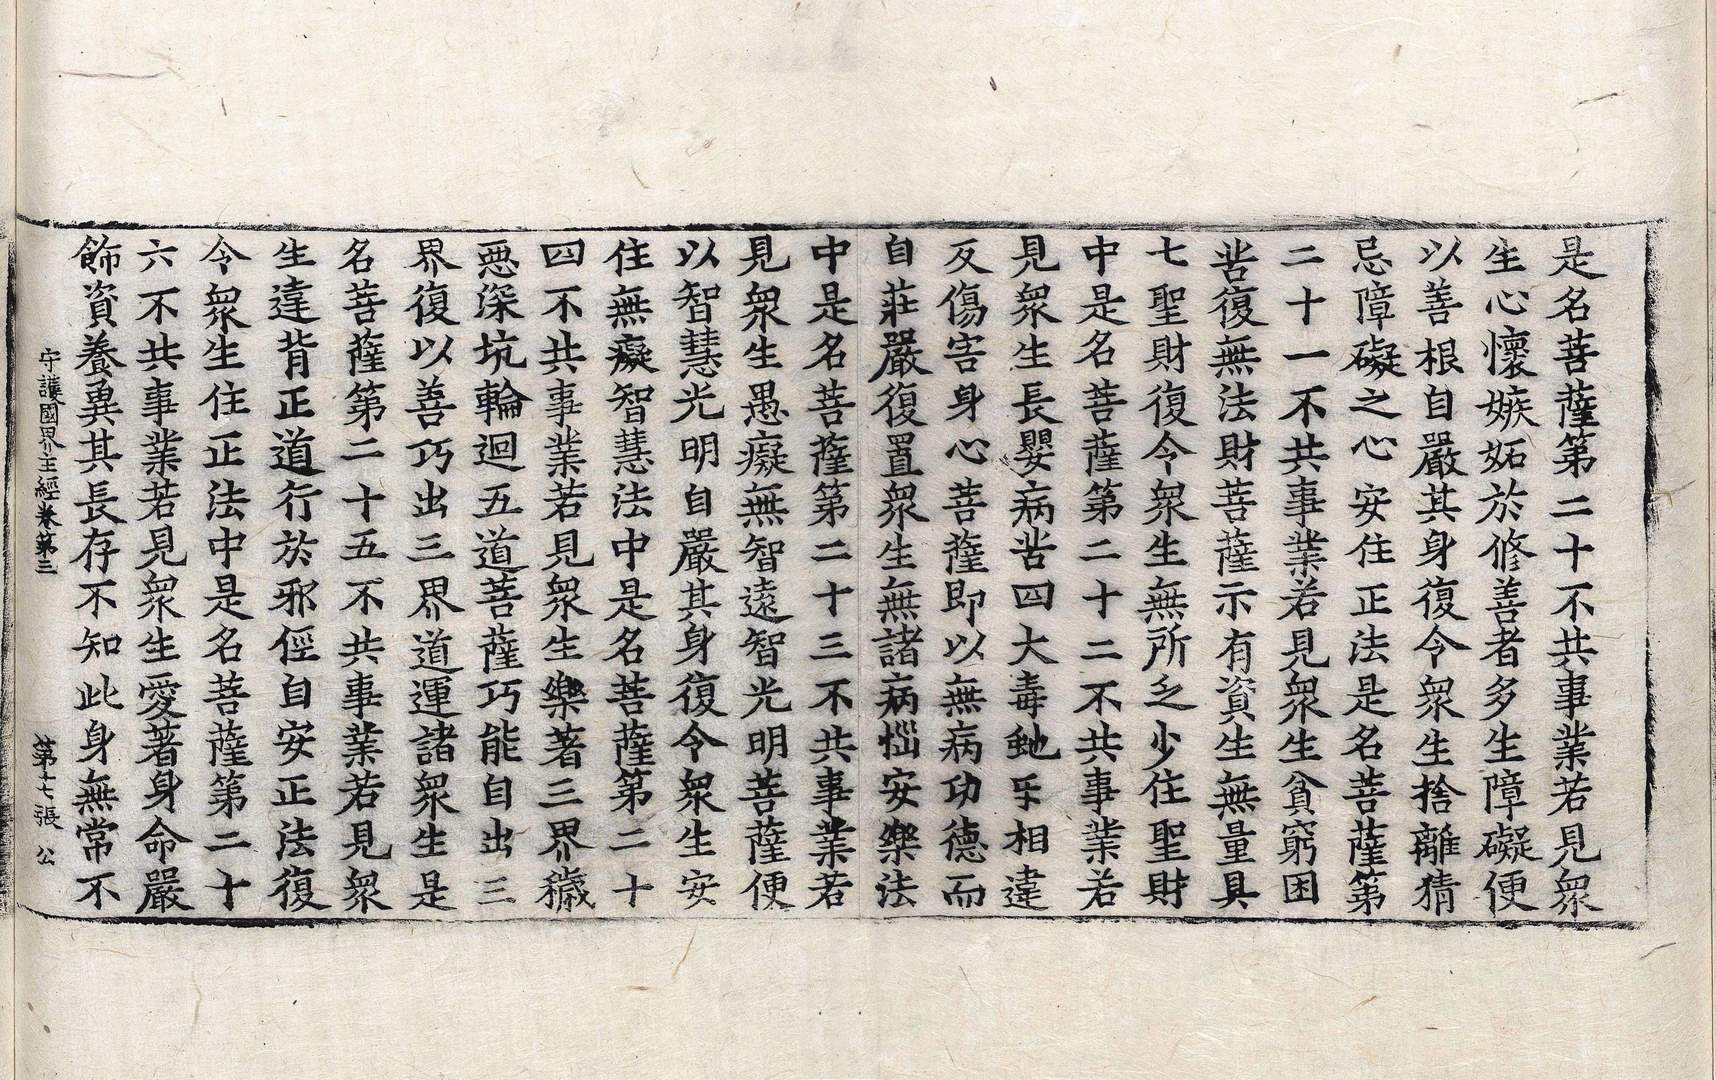 是名菩薩第二十不共事業若見衆
生心懷嫉妬於修善者多生障礙便
以善根自嚴其身復令衆生捨離猜
忌障礙之心安住正法是名菩薩第
二十一不共事業若見衆生貧窮困
苦復無法財菩薩示有資生無量具
七聖財復令衆生無所乏少住聖財
中是名菩薩第二十二不共事業若
見衆生長嬰病苦四大毒虵乐相違
反傷害身心菩薩即以無病功德而
自莊嚴復置衆生無諸病惱安樂法
中是名菩薩第二十三不共事業若
見衆生愚癡無智遠智光明菩薩便
以智慧光明自嚴其身復令衆生安
住無癡智慧法中是名菩薩第二十
四不共事業若見衆生樂著三界穢
惡深坑輪迴五道菩薩巧能自出三
界復以善巧出三界道運諸衆生是
名菩薩第二十五不共事業若見衆
生違背正道行於邪俓自安正法復
令衆生住正法中是名菩薩第二十
六不共事業若見衆生愛著身命嚴
飾資養冀其長存不知此身無常不
守護國界主經卷第三 第十七張 公